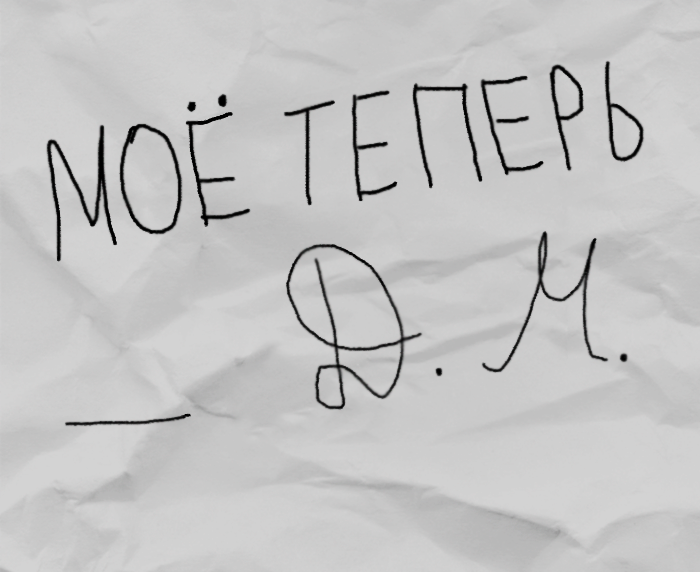 МОЁ ТЕПЕРЬ
_ Д. М.